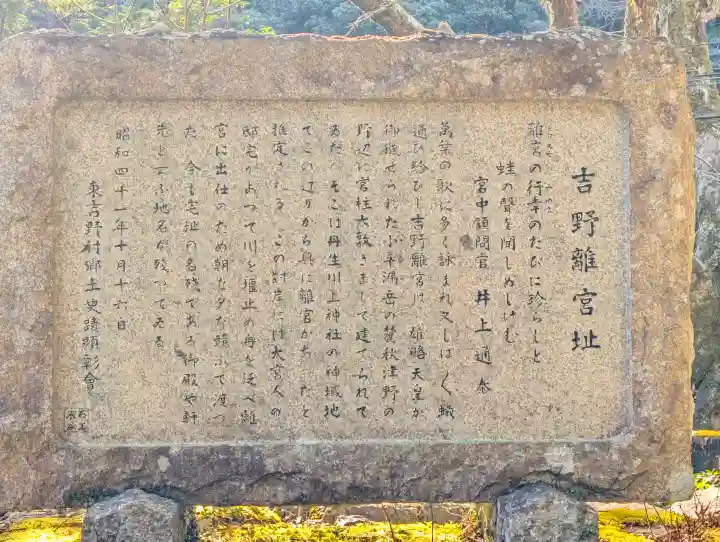 吉野離宮址
離宮の行幸のたびに珍らしと
蛙の聲を聞しめしけむ
宮中顧問官 井上通泰
萬葉の歌に多く詠まれ又しばしば蛾
通ひ給ひし吉野離宮は、雄略天皇が
御猟せられた小牟漏岳の麓秋津野の
野辺に宮柱太敷きまして建てられて
ゐた。そこは丹生川上神社の神域地
でこの辺りから奥に離宮があつたと
推定される この対岸には大宮人の
邸宅があつて川を堰止め舟を泛べ離
宮に出仕のため朝な夕な競ふて渡つ
た 今も宅址の名残である御殿や軒
先と云ふ地名が残つてゐる
昭和四十一年十月十六日
東吉野村郷土史蹟顕彰會